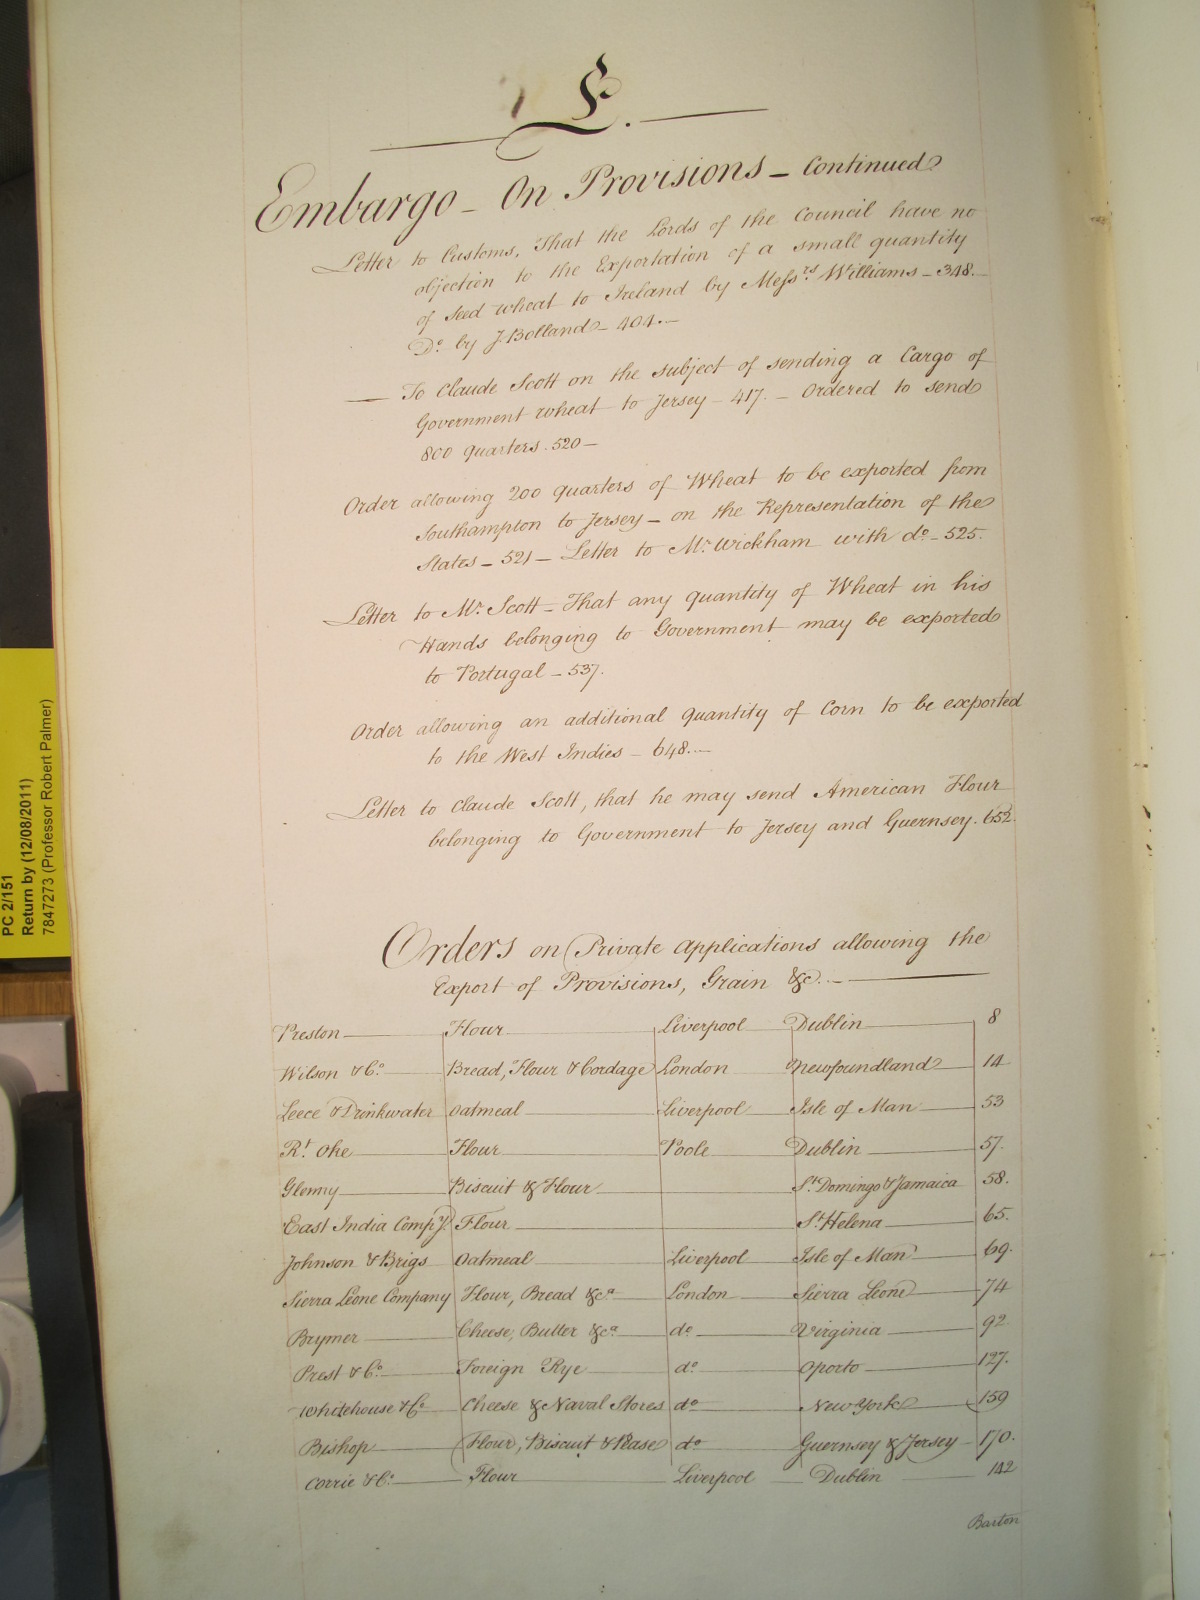 E.
Embargo - On Provisions - Continued
Letter to Customs, That the Lords of the Council have no
objection to the Exportation of a small quantity
of seed wheat to Ireland by Messrs. Williams - 348. -
Do. by J. Bolland - 404. -
— To Claude Scott on the subject of sending a Cargo of
Government wheat to Jersey - 417. - Ordered to send
800 quarters. 520 -
Order allowing 200 quarters of Wheat to be exported from
Southampton to Jersey - on the Representation of the
States - 521 - Letter to Mr. Wickham with do. - 525.
Letter to Mr. Scott - That any quantity of Wheat in his
Hands belonging to Government may be exported
to Portugal - 537.
Order allowing an additional quantity of Corn to be exported
to the West Indies - 648. -
Letter to Claude Scott, that he may send American Flour
belonging to Government to Jersey and Guernsey. 652.
Orders on Private Applications allowing the
Export of Provisions, Grain &c. -
Preston Flour Liverpool Dublin 8
Wilson & Co. Bread, Flour & Cordage London Newfoundland 14
Leece & Drinkwater Oatmeal Liverpool Isle of Man 53
Rt. Oke Flour Poole Dublin 57.
Glenny Biscuit & Flour St. Domingo & Jamaica 58.
East India Compy. Flour St. Helena 65.
Johnson & Brigs Oatmeal Liverpool Isle of Man 69.
Sierra Leone Company Flour, Bread &ca. London Sierra Leone 74
Brymer Cheese, Butter &ca. do. Virginia 92.
Prest & Co. Foreign Rye do. Oporto 127.
Whitehouse & Co. Cheese & Naval Stores do. New York 159
Bishop Flour, Biscuit & Pease do. Guernsey & Jersey 170.
Corrie & Co. Flour Liverpool Dublin 142
Barton
PC 2/151
Return by (12/08/2011)
7847273 (Professor Robert Palmer)